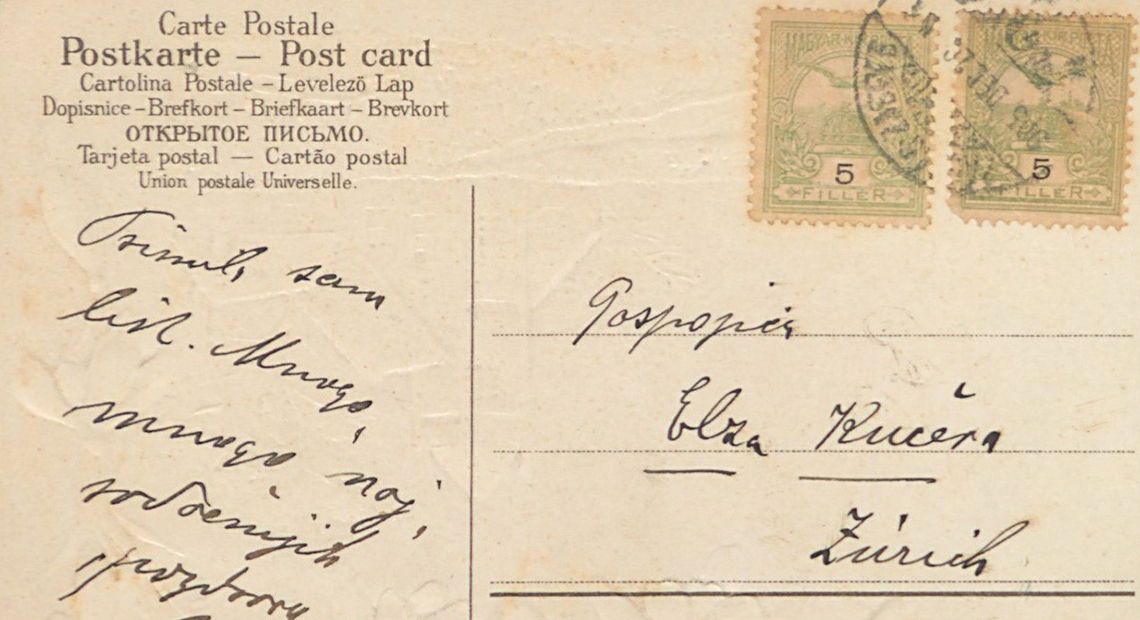 Carte Postale
Postkarte — Post card
Cartolina Postale – Levelező Lap
Dopisnice – Brefkort – Briefkaart – Brevkort
ОТКРЫТОЕ ПИСЬМО.
Tarjeta postal — Cartão postal
Union postale Universelle.
MAGYAR
5
FILLER
5
FILLER
ZAGREB
sam
list. Mnogo,
mnogo naj,
srdačnijih
pozdrava
Elza Kučera
Zürich